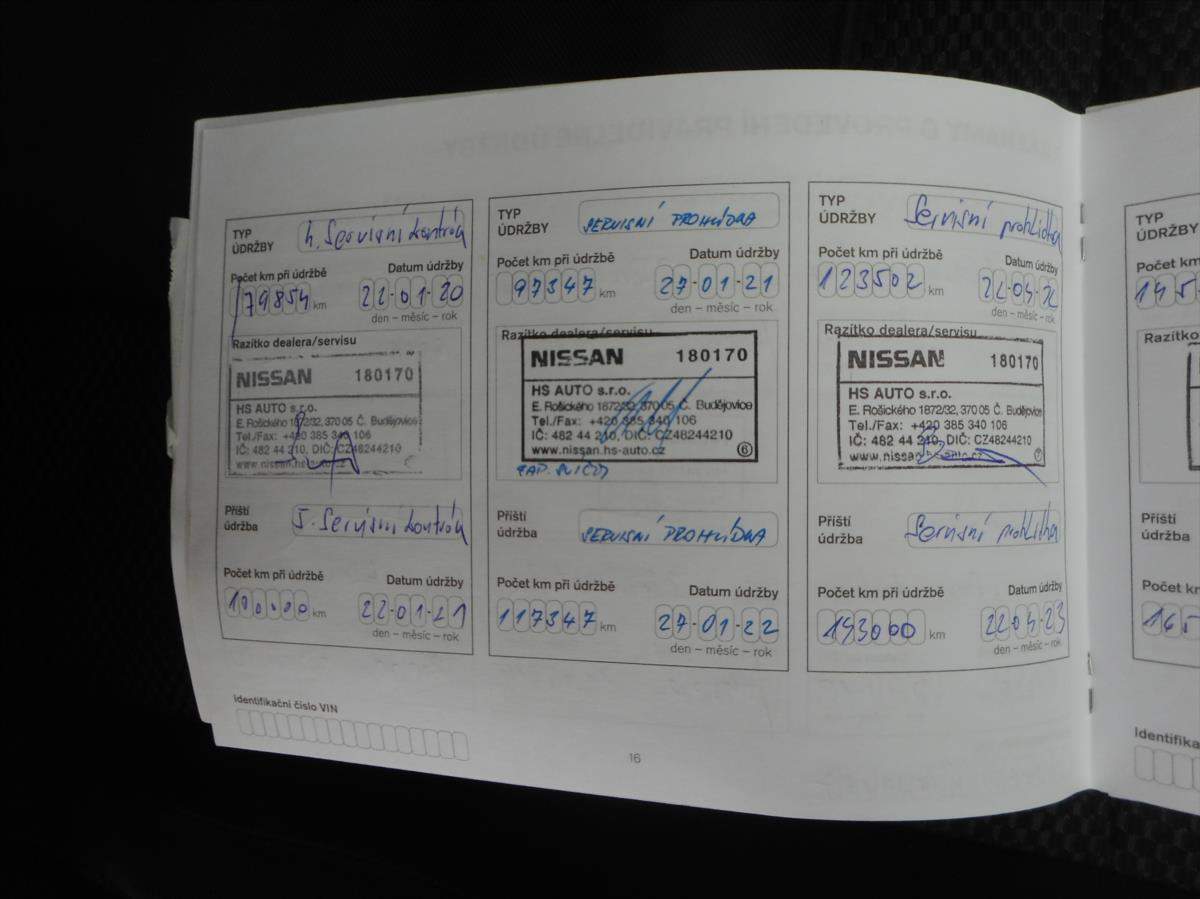 TYP ÚDRŽBY
4. Servisní kontrola
Počet km při údržbě
Datum údržby
79854 km
22-01-20
den – měsíc – rok
Razítko dealera/servisu
NISSAN 180170
HS AUTO s.r.o.
E. Rošického 1872/32, 370 05 Č. Budějovice
Tel./Fax: +420 385 340 106
IČ: 482 44 210, DIČ: CZ48244210
www.nissan.hs-auto.cz
Příští údržba
5. Servisní kontrola
Počet km při údržbě
Datum údržby
100.000 km
22-01-21
den – měsíc – rok
Identifikační číslo VIN
TYP ÚDRŽBY
SERVISNÍ PROHLÍDKA
Počet km při údržbě
Datum údržby
97347 km
27-01-21
den – měsíc – rok
Razítko dealera/servisu
NISSAN 180170
HS AUTO s.r.o.
E. Rošického 1872/32, 370 05 Č. Budějovice
Tel./Fax: +420 385 340 106
IČ: 482 44 210, DIČ: CZ48244210
www.nissan.hs-auto.cz 6
Příští údržba
SERVISNÍ PROHLÍDKA
Počet km při údržbě
Datum údržby
117347 km
27-01-22
den – měsíc – rok
16
TYP ÚDRŽBY
Servisní prohlídka
Počet km při údržbě
Datum údržby
123502 km
den – měsíc – rok
Razítko dealera/servisu
NISSAN 180170
HS AUTO s.r.o.
E. Rošického 1872/32, 370 05 Č. Budějovice
Tel./Fax: +420 385 340 106
IČ: 482 44 210, DIČ: CZ48244210
www.nissan.hs-auto.cz
Příští údržba
Servisní prohlídka
Počet km při údržbě
Datum údržby
143000 km
den – měsíc – rok
TYP ÚDRŽBY
Počet km
Razítko
NISSAN
Příští údržba
Počet km
Identifika